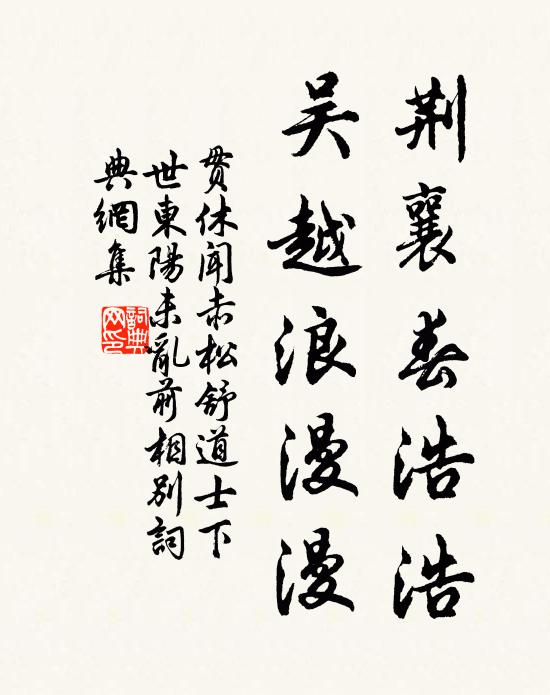 荆襄春浩浩
吴越浪漫漫
贯休闻赤松舒道士下
世東陽未亂前相别詞
典網集
詞典
网印